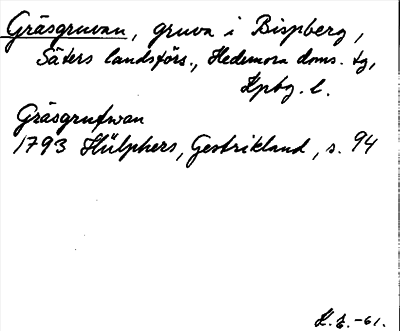 Gräsgruvan, gruva i Bispberg,
Säters landsförs., Hedemora doms. tg,
Kpbg. l.
Gräsgrufwan
1793 Hülphers, Gestrikland, s. 94
K.G.-61.